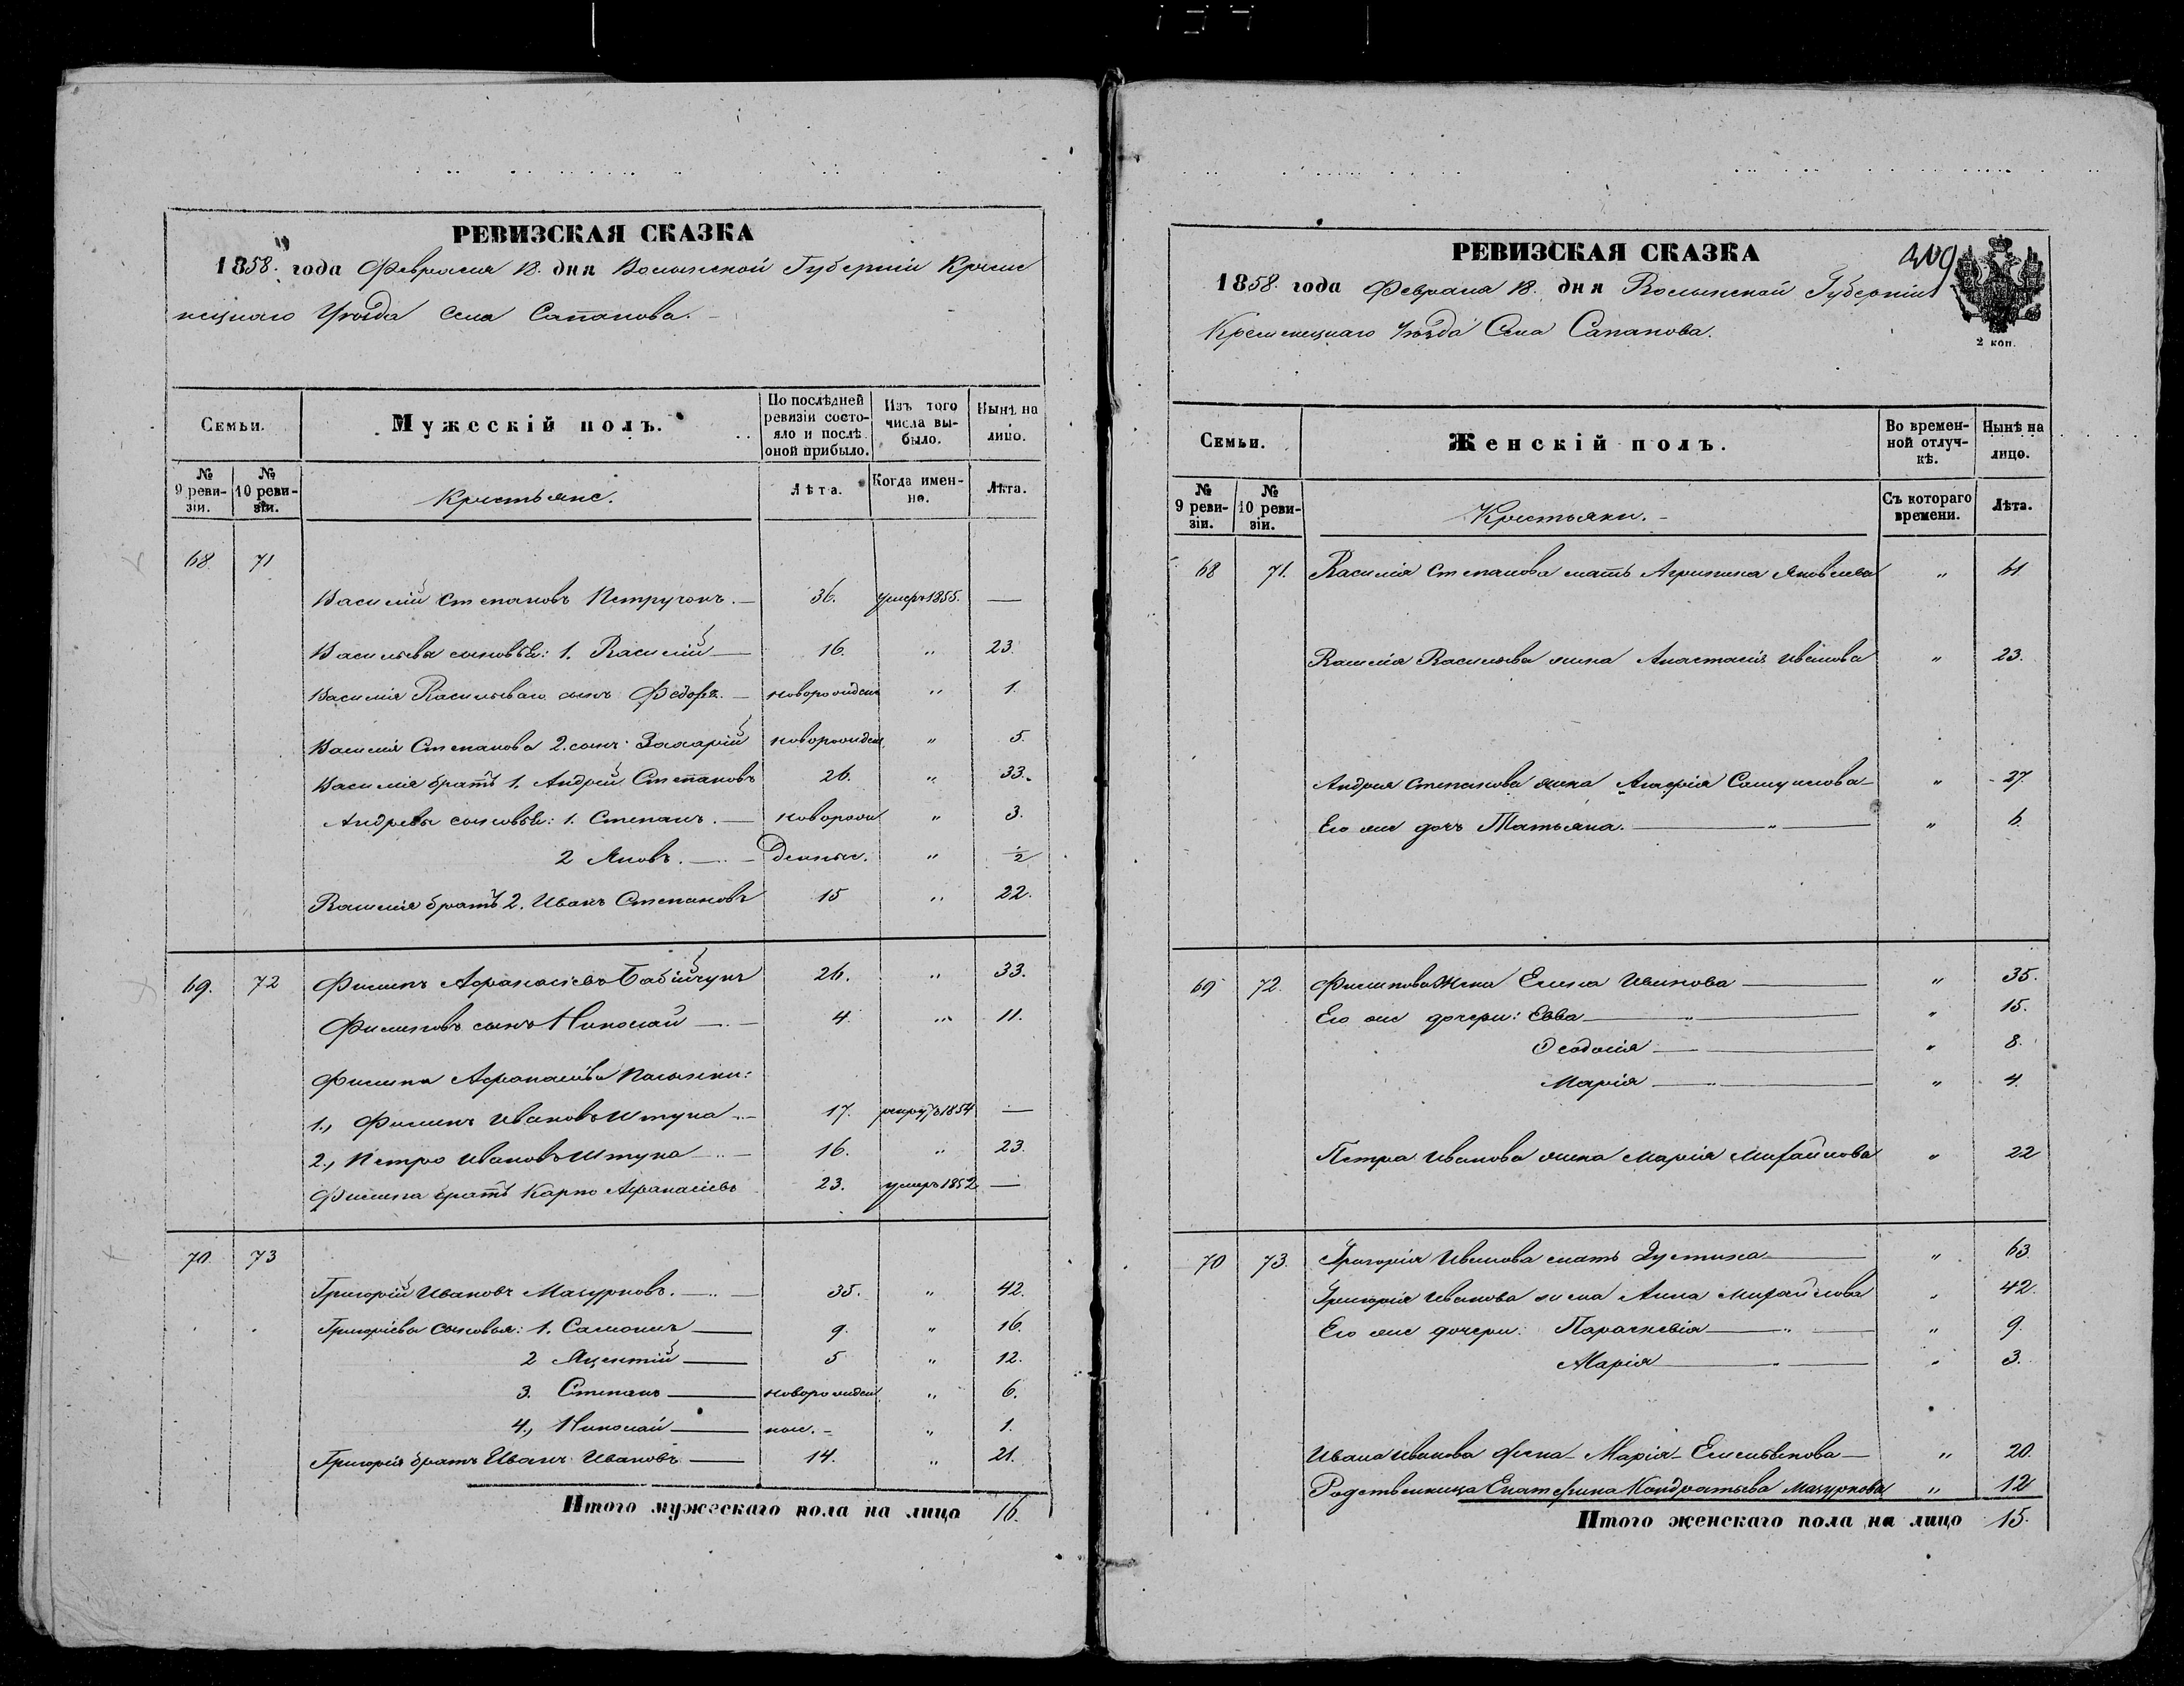 РЕВИЗСКАЯ СКАЗКА
1858. года Февраля 18. дня Волынской Губерніи Креме
нецкаго Уѣзда Села Сапанова.
Семьи.
Мужескій полъ.
По послѣдней ревизіи состояло и послѣ оной прибыло.
Изъ того числа выбыло.
Нынѣ на лицо.
№ 9 ревизіи.
№ 10 ревизіи.
Крестьяне.
Лѣта.
Когда именно.
Лѣта.
68 71
Василій Степановъ Петручокъ. — 36. умеръ 1855. —
Васильевы сыновья: 1. Василій — 16. " 23.
Василія Васильеваго сынъ Федоръ. — новорожден " 1.
Василія Степанова 2. сынъ: Захарій новорожден. " 5.
Василія братъ 1. Андрей Степановъ 26. " 33.
Андреевы сыновья: 1. Степанъ. — новорож " 3.
2 Яковъ. — денные. " 1/2
Василія братъ 2. Иванъ Степановъ 15 " 22.
69. 72 Филипъ Афанасіевъ Бабійчукъ 26. " 33.
Филиповъ сынъ Николай — 4. " 11.
Филипа Афанасіева пасынки:
1., Филипъ Ивановъ Штука — 17. рекрутъ 1854 —
2., Петро Ивановъ Штука — 16. " 23.
Филипа братъ Карпо Афанасіевъ 23. умеръ 1852 —
70. 73
Григорій Ивановъ Мазурковъ. — 35. " 42.
Григоріевы сыновья: 1. Самоилъ — 9. " 16.
2 Яцентій — 5 " 12.
3. Степанъ — новорожден " 6.
4., Николай — " 1.
Григорія братъ Иванъ Ивановъ — 14. " 21.
Итого мужескаго пола на лицо 16.
РЕВИЗСКАЯ СКАЗКА 409
1858. года Февраля 18. дня Волынской Губерніи
Кременецкаго Уѣзда Села Сапанова.
2 коп.
Семьи.
Женскій полъ.
Во временной отлучкѣ.
Нынѣ на лицо.
№ 9 ревизіи.
№ 10 ревизіи.
Крестьяки.
Съ котораго времени.
Лѣта.
68 71. Василія Степанова мать Агрипина Яковлева " 61
Василія Васильева жена Анастасія Иванова " 23.
Андрея Степанова жена Агафія Самуилова — " 27
Его же дочь Татьяна. — " 6
69 72. Филипова жена Елена Иванова — " 35.
Его же дочери: Евва — " 15.
Ѳеодосія — " 8.
Марія — " 4.
Петра Иванова жена Марія Михайлова " 22
70 73. Григорія Иванова мать Устина — " 63.
Григорія Иванова жена Анна Михайлова " 42.
Его же дочери: Параскевія — " 9.
Марія — " 3.
Ивана Иванова жена Марія — " 20.
Родственница Екатерина Кондратьева Мазуркова " 12
Итого женскаго пола на лицо 15.